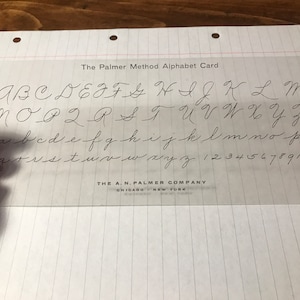 The Palmer Method Alphabet Card
A B C D E F G H I J K L M
N O P Q R S T U V W X Y Z
a b c d e f g h i j k l m n o p
q r s t u v w x y z 1 2 3 4 5 6 7 8 9
THE A. N. PALMER COMPANY
CHICAGO NEW YORK